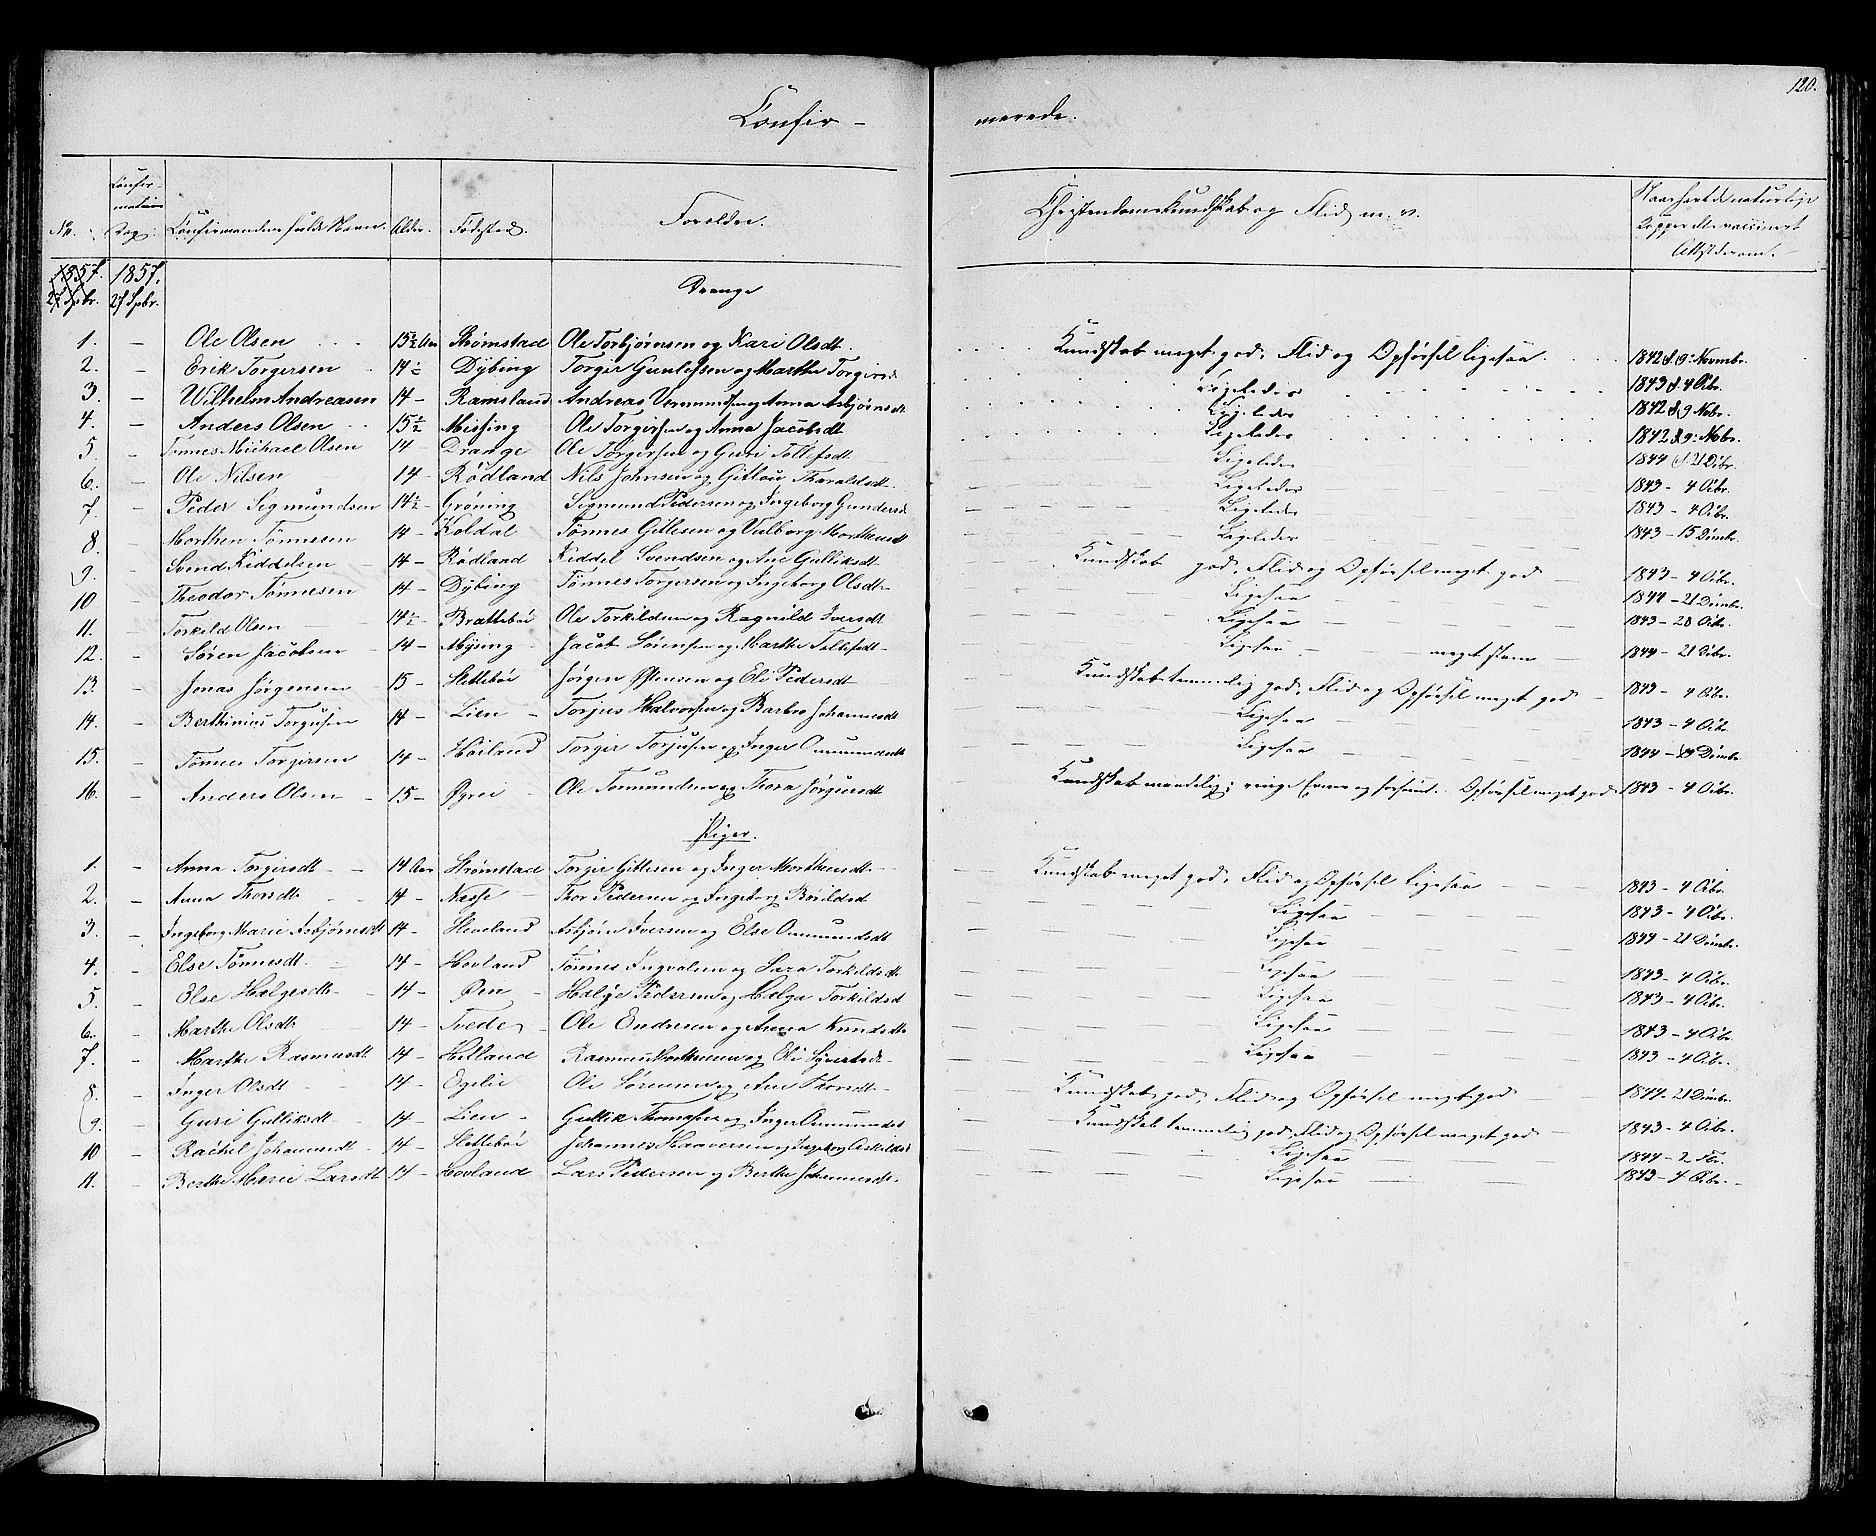 120.
Confir- merede.
No. Confirmations Dag. Confirmandens fulde Navn. Alder. Fødested. Forældre. Christendoms Kundskab og Flid m. v. Naar havt de naturlige Kopper eller vaccineret Attest derom.
1857. 27 Spbr. 1857. 27 Spbr. Drenge
1. — Ole Olsen 15½ Aar Strømstad Ole Torbjørnsen og Kari Olsdt. Kundskab meget god, Flid og Opførsel ligesaa. 1842 d. 9. Novmbr.
2. — Erik Torgersen 14½ Dybing Torger Gunlefsen og Marthe Torgersd Ligeledes 1843 d. 4 Oibr.
3. — Wilhelm Andreasen 14 - Ramsland Andreas og Anna Asbjørnsdt Ligeledes 1842 d. 9 Nobr.
4. — Anders Olsen 15½ Missing Ole Torgersen og Anna Jacobsdt Ligeledes 1842 d. 9. Nobr.
5. — Tønnes Michael Olsen 14 - Drange Ole Torgersen og Guri Tollefsdt Ligeledes 1844 d. 21 Dibr.
6. — Ole Nilsen 14 - Rødland Nils Johnsen og Gitlou Tharaldsdt Ligeledes 1843 - 4 Oibr.
7. — Peder Sigmundsen 14½ Grøning Sigmund Pedersen og Ingeborg Gundersd. Ligeledes 1843 - 4 Oibr.
8. — Morthen Tønnesen 14 - Koldal Tønnes Gitlesen og Valborg Morthensdt Ligeledes 1843 - 15 Dcmbr.
9. — Svend Kiddelsen 14 - Rødland Kiddel Svendsen og Ane Gulliksdt Kundskab god, Flid og Opførsel meget god 1843 - 4 Oibr.
10 — Theodor Tønnesen 14 - Dybing Tønnes Torgersen og Ingeborg Olsdt. Ligesaa 1844 - 21 Dcmbr.
11. — Torkild Olsen 14½ Brattebøe Ole Torkildsen og Ragnild Iversdt Ligesaa 1843 - 28 Oibr.
12. — Søren Jacobsen 14 - Mysing Jacob Sørensen og Marthe Tollefsdt. Ligesaa — meget stam 1844 - 21 Dibr.
13. — Jonas Jørgensen 15 - Slettebøe Jørgen Østensen og Eli Pedersdt Kundskab temmelig god, Flid og Opførsel meget god 1843 - 4 Oibr.
14. — Berthinius Torgusen 14 - Lien Torjus Halvorsen og Barbro Johannesdt Ligesaa 1843 - 4 Oibr
15. — Tønnes Torgersen 14 - Høiland Torger Torjusen og Inger Ommundsdt Ligesaa 1844 - 21 Dcmbr.
16. — Anders Olsen 15 - Øgrei Ole Tormundsen og Thora Jørgensdt Kundskab maadelig; ringe Evner og forsømt. Opførsel meget god 1843 - 4 Oibr.
Piger.
1. — Anna Torgersdt 14 Aar Strømstad Torger Gitlesen og Inger Morthensdt. Kundskab meget god, Flid og Opførsel ligesaa 1843 - 4 Oibr.
2. — Anna Thorsdt 14 - Nasse Thor Pedersen og Ingeborg Børildsd Ligesaa 1843 - 4 Oibr.
3. — Ingeborg Marie Asbjørnsdt 14 - Steneland Asbjørn Iversen og Else Ommundsdt Ligesaa 1844 - 21 Dcmbr.
4. — Else Tønnesdt. 14 - Hovland Tønnes Ingvalsen og Sara Torkildsdt. Ligesaa 1843 - 4 Oibr.
5. — Else Halgesdt. 14 - Øen Halge Pedersen og Helga Torkildsd Ligesaa 1843 - 4 Oibr.
6. — Marthe Olsdt 14 - Tvede Ole Endresen og Anna Knudsdt. Ligesaa 1843 - 4 Oibr.
7. — Marthe Rasmusdt 14 - Helland Rasmus Morthensen og Eli Syvertsd. Ligesaa 1843 - 4 Oibr.
8. — Inger Olsdt 14 - Egelie Ole Sørensen og Ane Kundskab god, Flid og Opførsel meget god 1844 - 21 Dcmbr.
9. — Guri Gulliksdt 14 - Lien Gullik Thomassen og Inger Ommundsdt Kundskab temmelig god, Flid og Opførsel meget god 1843 - 4 Oibr.
10 — Rachel Johannesdt 14 - Slettebøe Johannes Haaversen og Ingeborg Askildsd Ligesaa 1844 - 2 Fbr.
11. — Berthe Marie Larsdt 14 - Hovland Lars Pedersen og Berthe Johannesdt. Ligesaa 1843 - 4 Oibr.